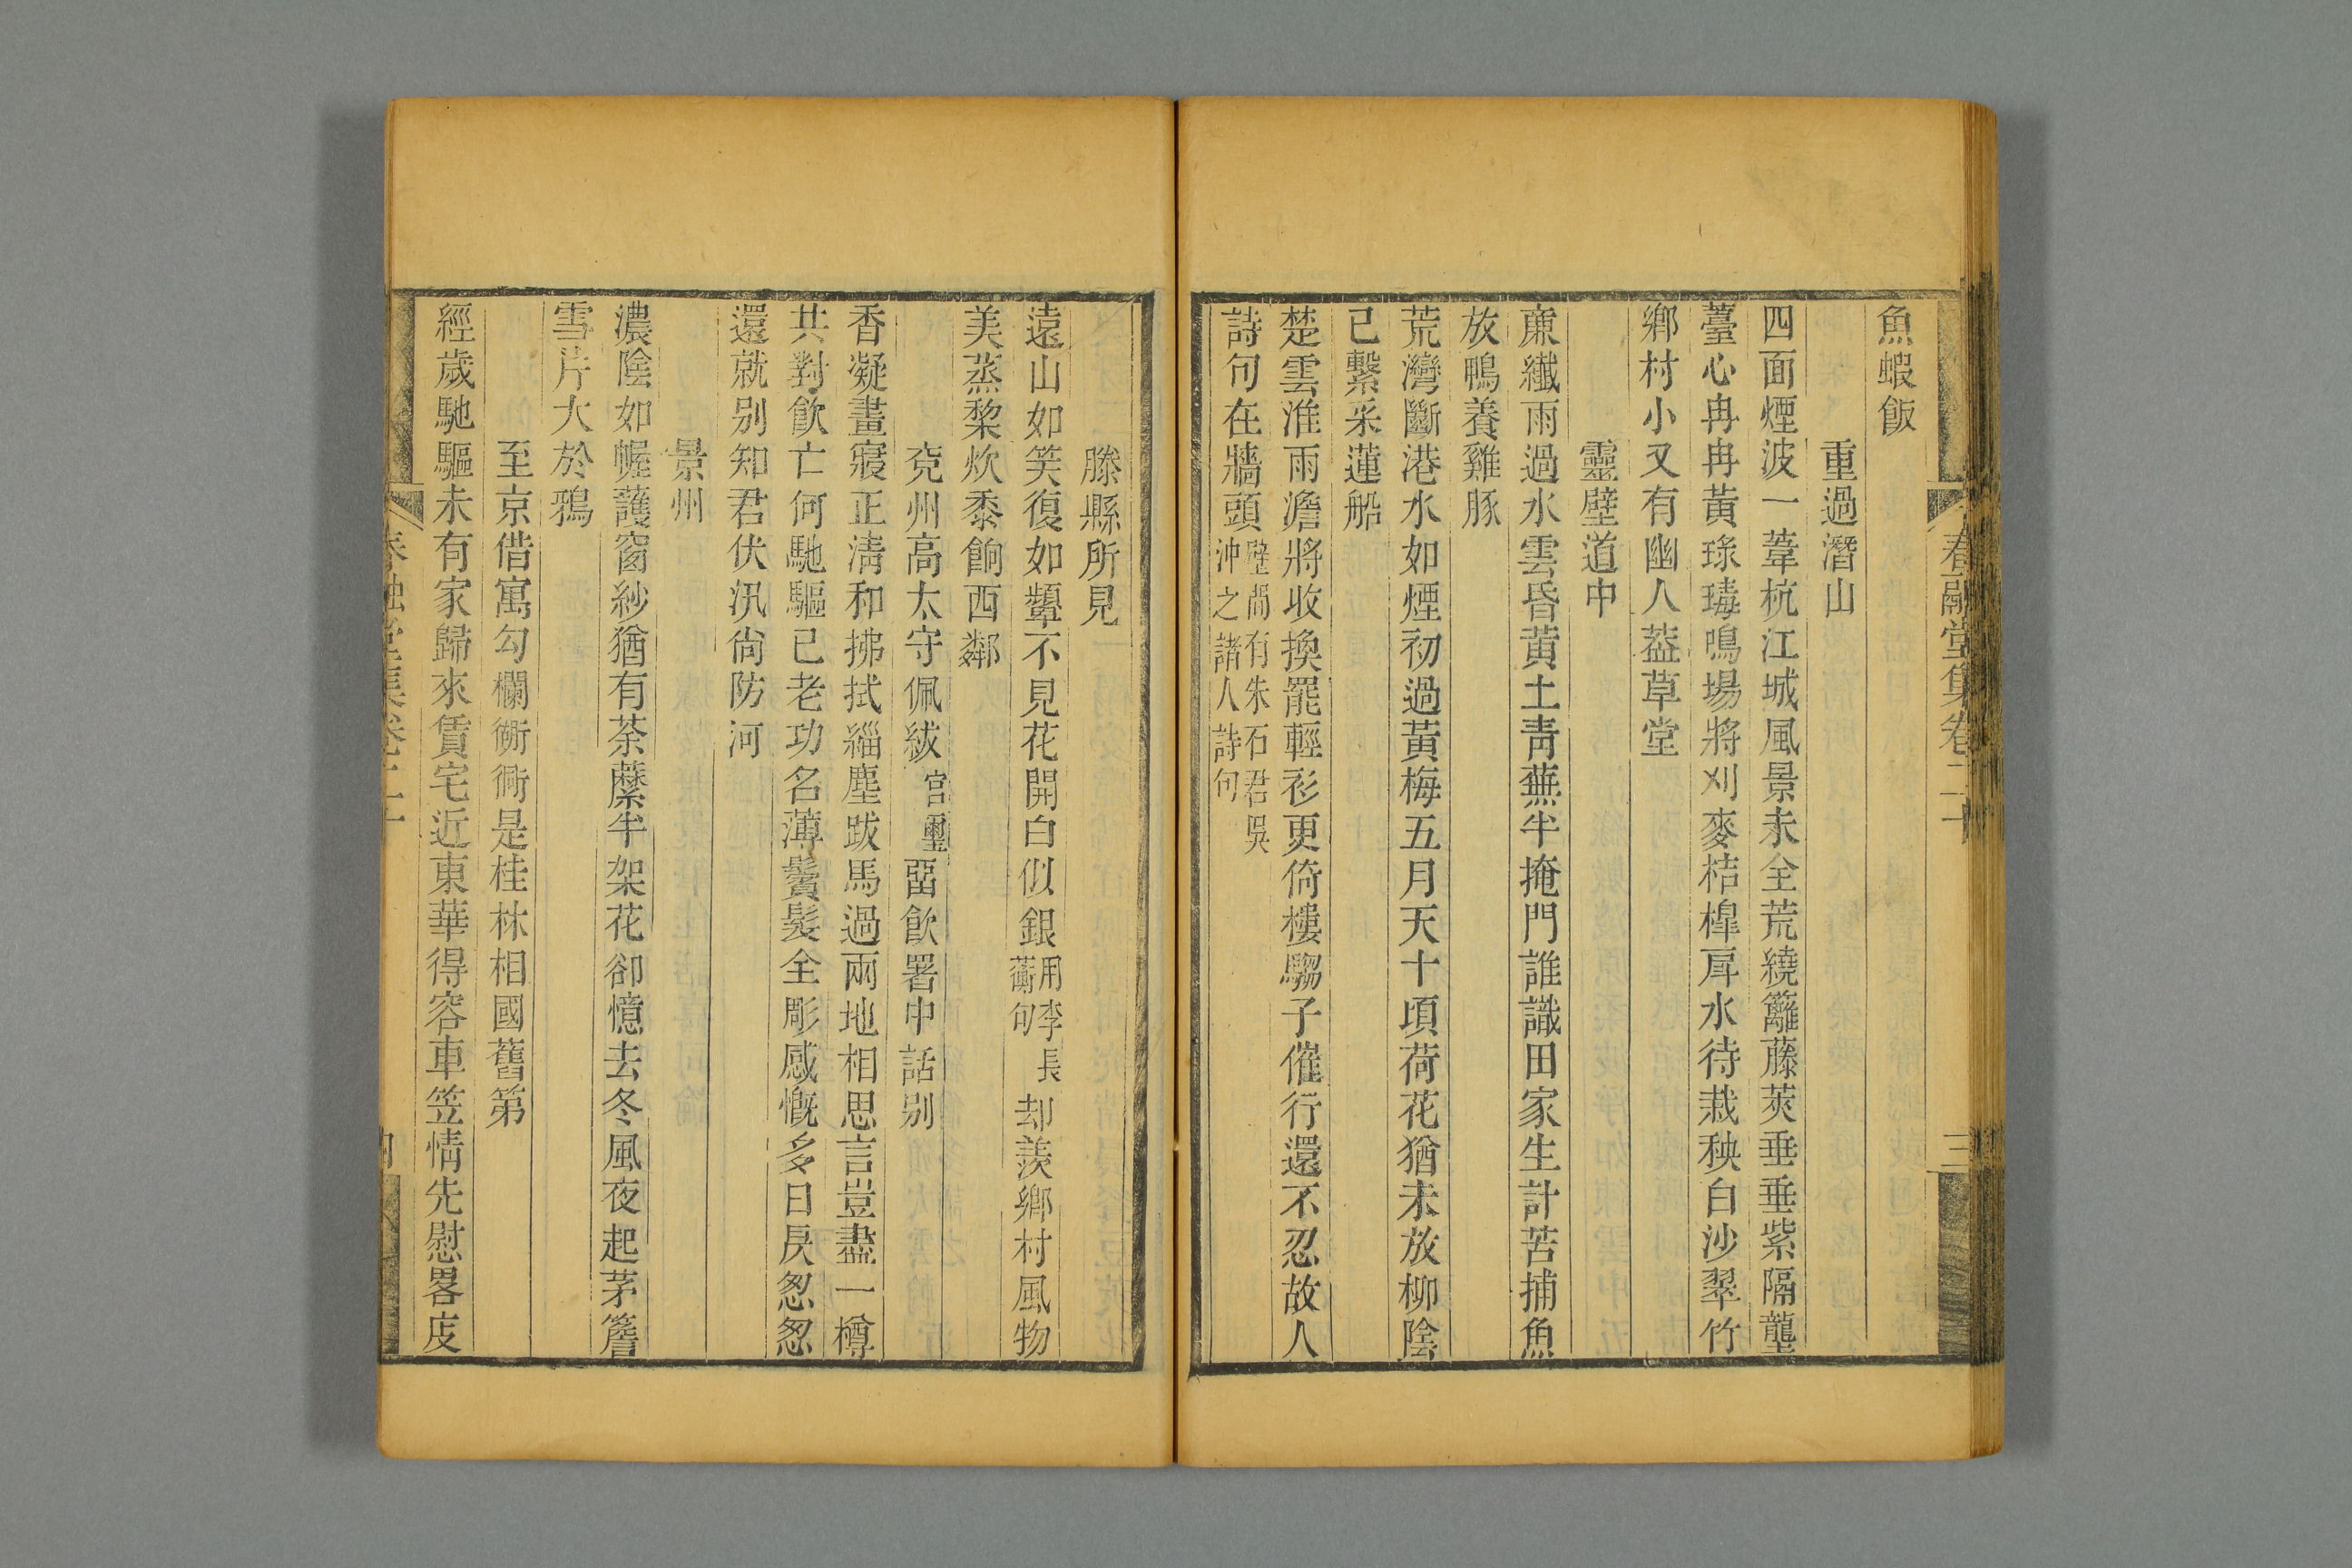 春融堂集卷二十
三
魚蝦飯
重過潛山
四面煙波一葦杭江城風景未全荒繞籬藤莢垂垂紫隔壟
薹心冉冉黃琭𤨏鳴場將刈麥桔槹戽水待栽秧白沙翠竹
鄉村小又有幽人葢草堂
靈壁道中
亷纖雨過水雲昏黃土靑蕪半掩門誰識田家生計苦捕魚
放鴨養雞豚
荒灣斷港水如煙初過黃梅五月天十頃荷花猶未放柳陰
已繫采蓮船
楚雲淮雨澹將收換罷輕衫更倚樓騶子催行還不忍故人
詩句在牆頭壁間有朱石君吳沖之諸人詩句
滕縣所見
遠山如笑復如顰不見花開白似銀用李長蘅句却羨鄉村風物
美蒸棃炊黍餉西鄰
兗州高太守佩紱宮璽畱飮署中話別
香凝畫寢正淸和拂拭緇塵跋馬過兩地相思言豈盡一樽
共對飮亡何馳驅已老功名薄鬢髮全彫感慨多日昃怱怱
還就別知君伏汛尙防河
景州
濃陰如幄護窗紗猶有荼蘼半架花卻憶去冬風夜起茅簷
雪片大於鴉
至京借寓勾欄衚衕是桂林相國舊第
經歲馳驅未有家歸來賃宅近東華得容車笠情先慰畧庋
春融堂集卷二十